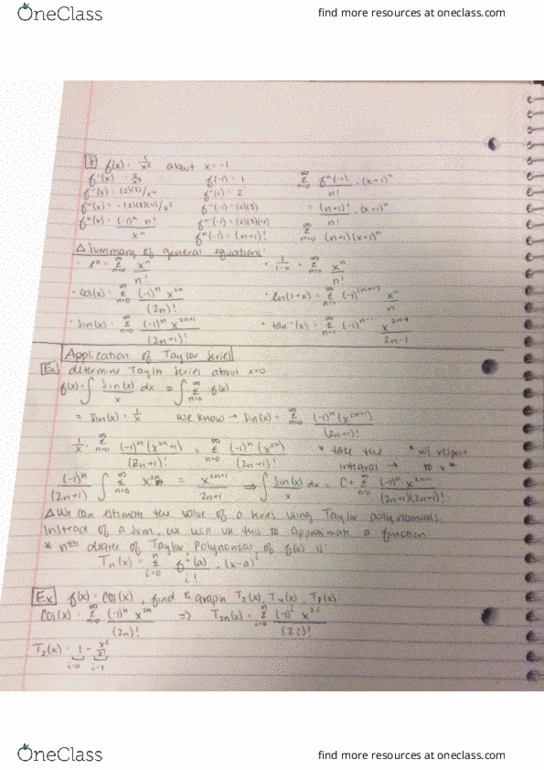 OneClass
find more resources at oneclass.com
f(x) = 1/x² about x = -1
f(-1) = 1
f'(-1) = 2
f''(x) = (2)(3)/x⁴
f''(-1) = (2)(3)
f'''(x) = -(2)(3)(4)/x⁵
f'''(-1) = (2)(3)(4)
fⁿ(-1) = (n+1)!
∞ Σ n=0 fⁿ(-1)/n! · (x+1)ⁿ
= (n+1)!/n! · (x+1)ⁿ
∞ Σ n=0 (n+1)(x+1)ⁿ
Δ Summary of general equations:
· eˣ = ∞ Σ n=0 xⁿ/n!
· 1/1-x = ∞ Σ n=0 xⁿ/n!
· cos(x) = ∞ Σ n=0 (-1)ⁿ x²ⁿ/(2n)!
· ln(1+x) = ∞ Σ xⁿ/n
· sin(x) = ∞ Σ n=0 (-1)ⁿ x²ⁿ⁺¹/(2n+1)!
· tan⁻¹(x) = ∞ Σ x²ⁿ⁻¹/2n-1
Application of Taylor Series
Ex determine Taylor Series about x=0
f(x) = ∫ sin(x)/x dx = ∫ ∞ Σ n=0 f(x)
= sin(x) · 1/x we know → sin(x) = ∞ Σ n=0 (-1)ⁿ (x²ⁿ⁺¹)/(2n+1)!
1/x · ∞ Σ n=0 (-1)ⁿ (x²ⁿ⁺¹)/(2n+1)! = ∞ Σ n=0 (-1)ⁿ (x²ⁿ)/(2n+1)! * take the integral → * w/ respect to x *
(-1)ⁿ/(2n+1) ∫ ∞ Σ n=0 x²ⁿ = x²ⁿ⁺¹/2n+1 ⇒ ∫ sin(x)/x dx = C + ∞ Σ n=0 (-1)ⁿ x²ⁿ⁺¹/(2n+1)(2n+1)!
Δ We can estimate the value of a series using Taylor polynomials.
Instead of a sum, we will use this to approximate a function
* nth degree of Taylor Polynomial of f(x) is:
Tₙ(x) = n Σ i=0 fⁱ(a)/i! · (x-a)ⁱ
Ex f(x) = cos(x), find & graph T₂(x), T₄(x), T₈(x)
cos(x) = ∞ Σ n=0 (-1)ⁿ x²ⁿ/(2n)! ⇒ T₂ₙ(x) = n Σ i=0 (-1)ⁱ x²ⁱ/(2i)!
T₂(x) = 1 - x²/2
i=0 i=1
OneClass
find more resources at oneclass.com